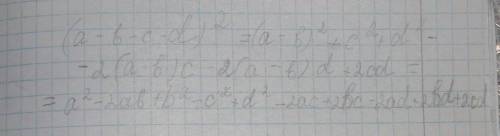 (a - b - c - d)² = (a - b)² + c² + d² -
- 2(a - b)c - 2(a - b)d + 2cd =
= a² - 2ab + b² + c² + d² - 2ac + 2bc - 2ad + 2bd + 2cd